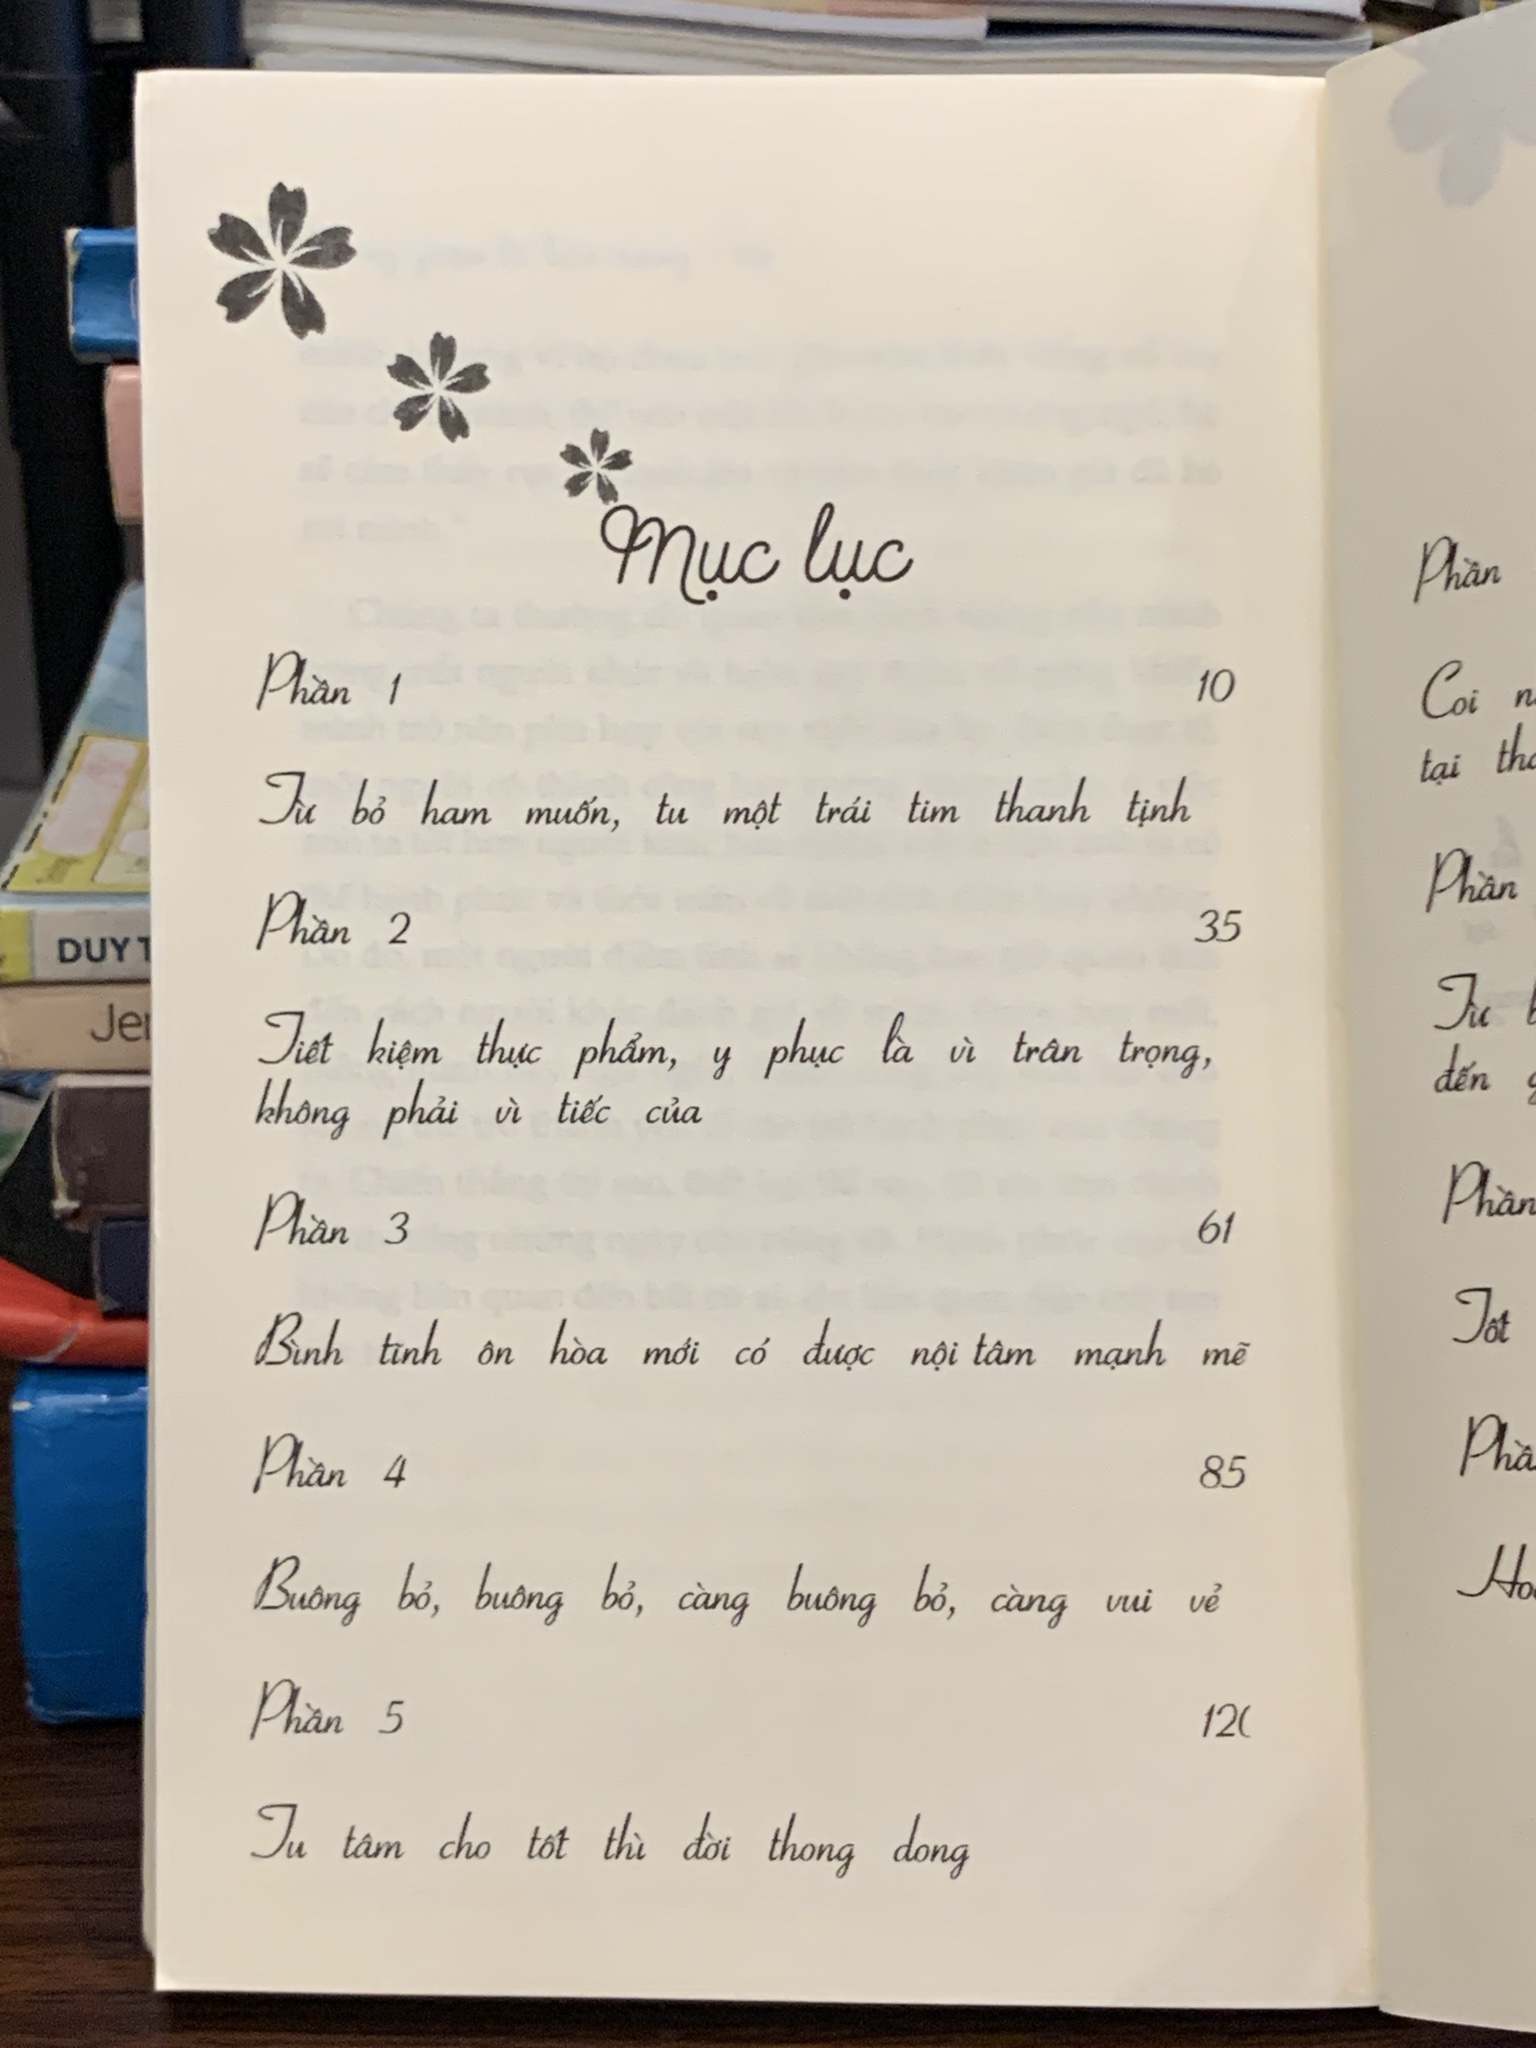 Mục lục
Phần 1 10
Từ bỏ ham muốn, tu một trái tim thanh tịnh
Phần 2 35
Tiết kiệm thực phẩm, y phục là vì trân trọng,
không phải vì tiếc của
Phần 3 61
Bình tĩnh ôn hòa mới có được nội tâm mạnh mẽ
Phần 4 85
Buông bỏ, buông bỏ, càng buông bỏ, càng vui vẻ
Phần 5
Tu tâm cho tốt thì đời thong dong
Phần
Coi
tại
Phần
Từ
đến
Phần
Tốt
DUY